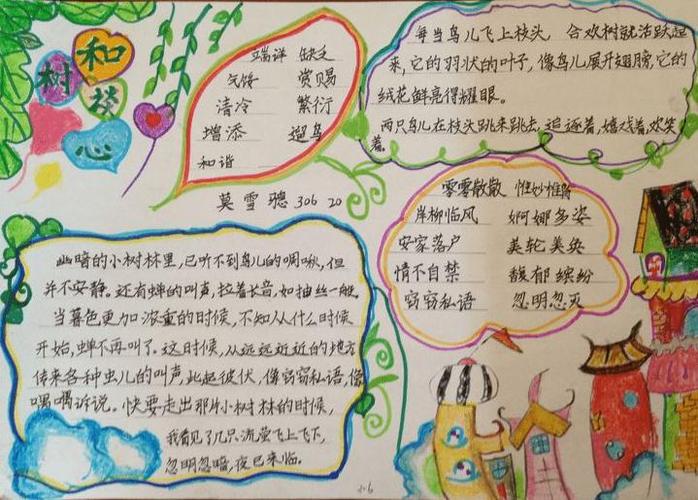 和
树谈
心
端详 缺乏
气馁 赏赐
清冷 繁衍
增添 遛鸟
和谐
莫雪骢 306 20
每当鸟儿飞上枝头，合欢树就活跃起
来，它的羽状的叶子，像鸟儿展开翅膀，它的
绒花鲜亮得耀眼。
两只鸟儿在枝头跳来跳去，追逐着，嬉戏着，欢笑
着。
零零散散 惟妙惟肖
岸柳临风 婀娜多姿
安家落户 美轮美奂
情不自禁 馥郁缤纷
窃窃私语 忽明忽灭
幽暗的小树林里，已听不到鸟儿的啁啾，但
并不安静。还有蝉的叫声，拉着长音，如抽丝一般。
当暮色更加浓重的时候，不知从什么时候
开始，蝉不再叫了。这时候，从远远近近的地方
传来各种虫儿的叫声，此起彼伏，像窃窃私语，像
喁喁诉说。快要走出那片小树林的时候，
我看见了几只流萤飞上飞下，
忽明忽暗，夜已来临。